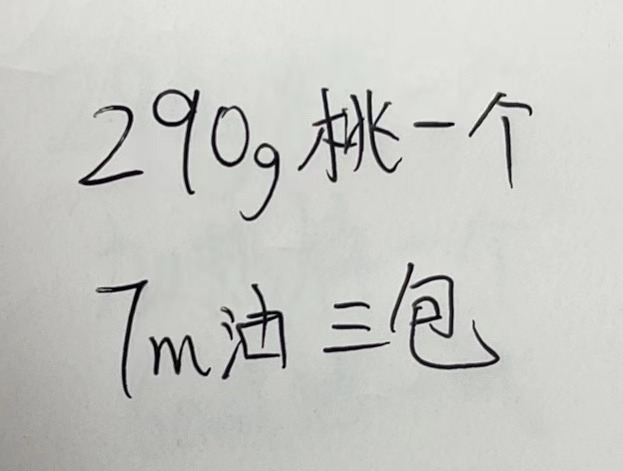 290g桃一个
7m油三包